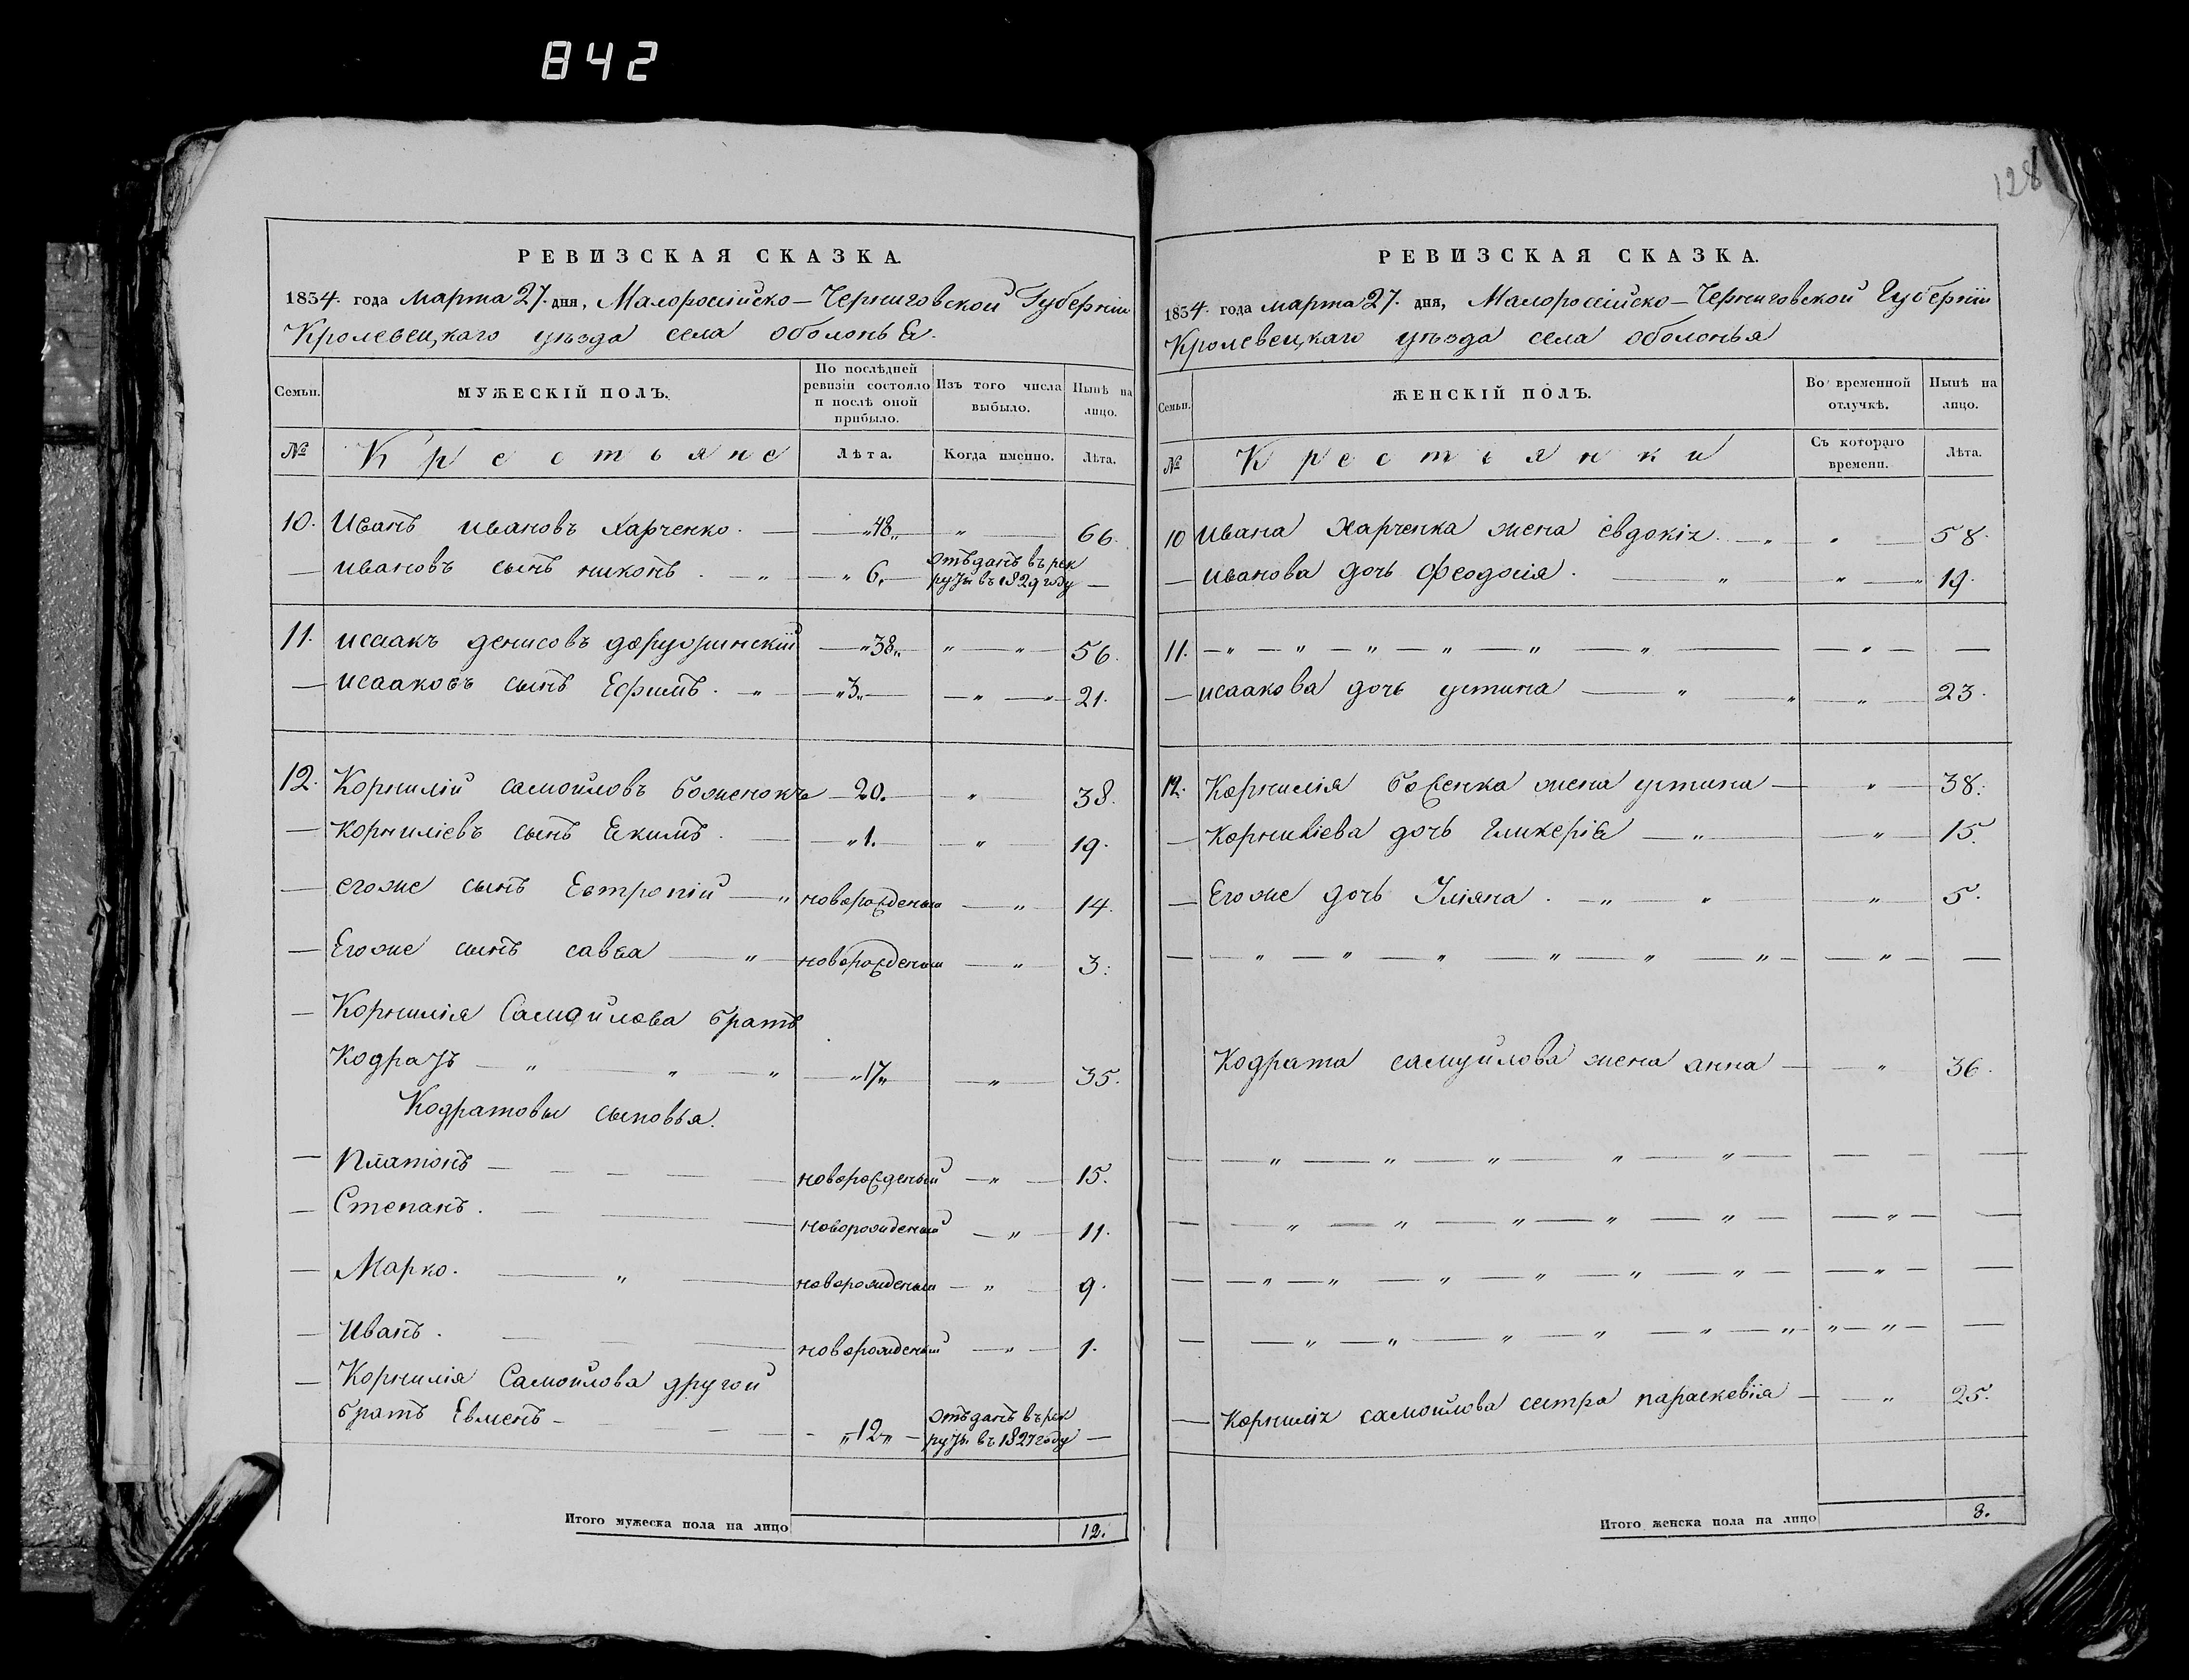 842
128
РЕВИЗСКАЯ СКАЗКА.
1834. года марта 27. дня, Малороссійско-Черниговской Губерніи
Кролевецкаго уѣзда села оболонья.
Семьи. МУЖЕСКІЙ ПОЛЪ. По послѣдней ревизіи состояло и послѣ оной прибыло. Изъ того числа выбыло. Нынѣ на лицо.
№ Крестьяне Лѣта. Когда именно. Лѣта.
10. Иванъ ивановъ Харченко. — „48„ „ 66.
— ивановъ сынъ никонъ. — „ 6. отъданъ въ рекруты въ 1829 году —
11. исаакъ денисовъ — „38„ „ „ 56.
— исааковъ сынъ Ефимъ. „ „3„ „ „ 21.
12. Корнилій самойловъ боженокъ — 20. „ 38.
— Корниліевъ сынъ Екимъ. — „1. „ 19.
— егоже сынъ Евтропій — „ новорожденый „ 14.
— Егоже сынъ савва — „ новорожденый „ 3.
— Корнилія Самойлова братъ
Кодратъ — „ „ „ „17„ „ 35.
Кодратовы сыновья.
— Платонъ — новорожденый „ 15.
— Степанъ. — новорожденый „ 11.
— Марко. — „ новорожденый „ 9.
— Иванъ. — новорожденый „ 1.
— Корнилія Самойлова другой
братъ Евменъ — „12„ отъданъ въ рекруты въ 1827 году —
Итого мужеска пола на лицо 12.
РЕВИЗСКАЯ СКАЗКА.
1834. года марта 27. дня, Малороссійско-Черниговской Губерніи
Кролевецкаго уѣзда села оболонья
Семьи. ЖЕНСКІЙ ПОЛЪ. Во временной отлучкѣ. Нынѣ на лицо.
№ Крестьянки Съ котораго времени. Лѣта.
10 Ивана Харченка жена евдокія. — „ „ 58.
— Иванова дочь Феодосія. — „ „ 19.
11. — „ — „ — „ — „ — „ — „ — „ —
— исаакова дочь устина — „ „ „ 23.
12. Корнилія боженка жена устина — „ 38.
— Корниліева дочь Гликерія — „ „ 15.
— Егоже дочь Уліяна. — „ „ „ 5.
— „ — „ — „ — „ — „ — „ — „ —
Кодрата самуйлова жена анна — „ 36.
— „ — „ — „ — „ — „ — —
— „ — „ — „ — „ — „ — „ —
— „ — „ — „ — „ — „ — „ — „ —
— „ — „ — „ — „ — „ — „ — „ — „ —
— Корнилія самойлова сестра параскевія — „ 25.
Итого женска пола на лицо 8.